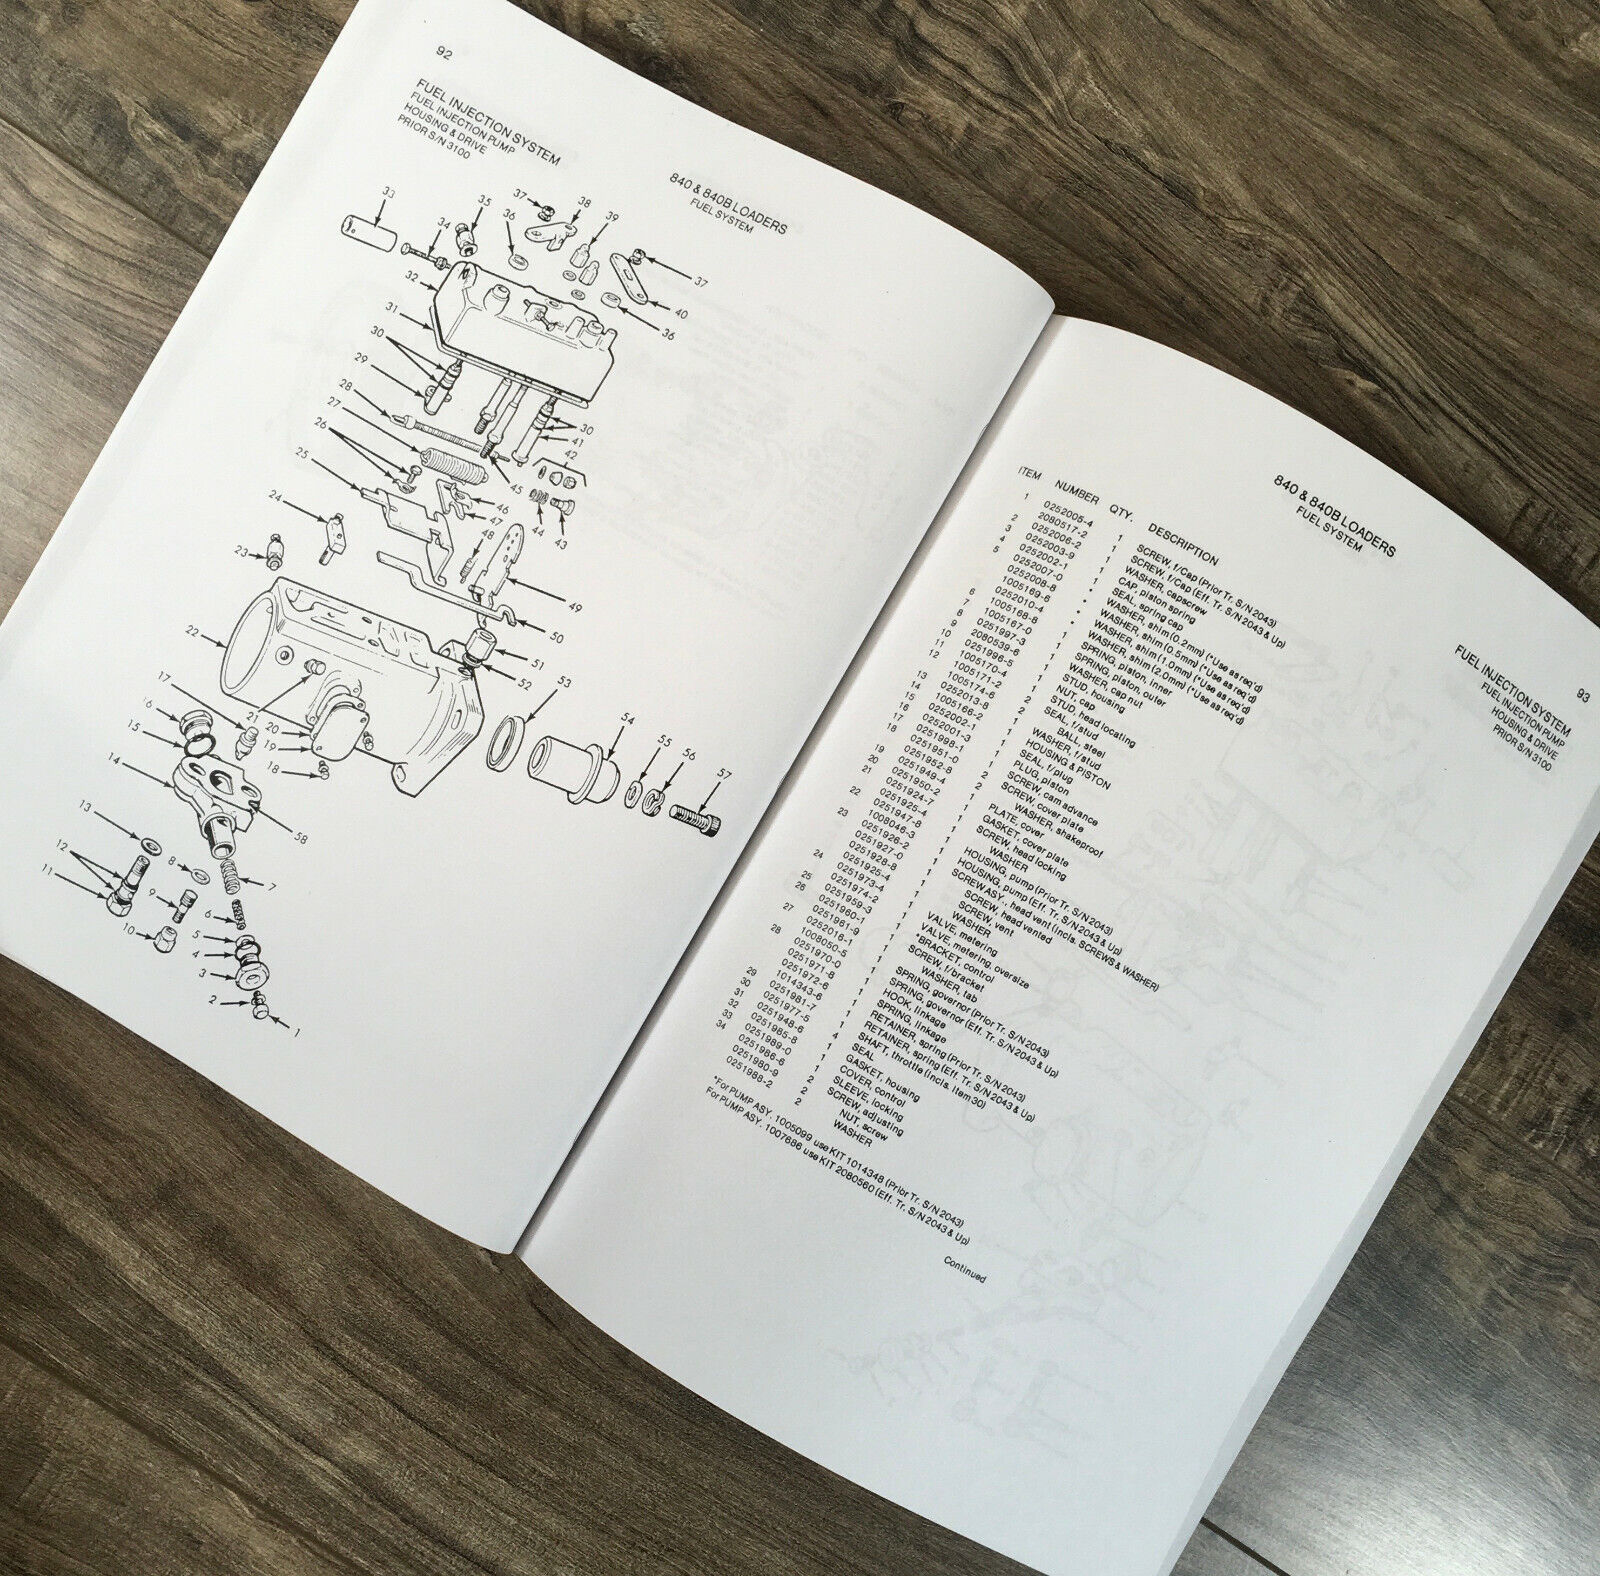 92
FUEL INJECTION SYSTEM
FUEL INJECTION PUMP
HOUSING & DRIVE
PRIOR S/N 3100
840 & 840B LOADERS
FUEL SYSTEM
33
34
35
36
37
38
39
37
40
36
32
31
30
29
28
27
26
25
24
23
22
30
41
42
45
46
47
48
44
43
49
50
51
52
53
54
55
56
57
21
20
19
18
17
16
15
14
58
13
12
11
10
9
8
7
6
5
4
3
2
1
840 & 840B LOADERS
FUEL SYSTEM
93
FUEL INJECTION SYSTEM
FUEL INJECTION PUMP
HOUSING & DRIVE
PRIOR S/N 3100
ITEM NUMBER QTY. DESCRIPTION
1 0252005-4 1 SCREW, f/Cap (Prior Tr. S/N 2043)
2080517-2 1 SCREW, f/Cap (Eff. Tr. S/N 2043 & Up)
2 0252006-2 1 WASHER, capscrew
3 0252003-9 1 CAP, piston spring
4 0252002-1 1 SEAL, spring cap
5 0252007-0 * WASHER, shim (0.2mm) (*Use as req'd)
0252008-8 * WASHER, shim (0.5mm) (*Use as req'd)
1005169-6 * WASHER, shim (1.0mm) (*Use as req'd)
0252010-4 * WASHER, shim (2.0mm) (*Use as req'd)
6 1005168-8 1 SPRING, piston, inner
7 1005167-0 1 SPRING, piston, outer
8 0251997-3 1 WASHER, cap nut
9 2080539-6 1 STUD, housing
10 0251996-5 1 NUT, cap
11 1005170-4 1 STUD, head locating
12 1005171-2 2 SEAL, f/stud
1005174-6 1 BALL, steel
13 0252013-8 2 WASHER, f/stud
14 1005166-2 1 HOUSING & PISTON
15 0252002-1 1 SEAL, f/plug
16 0252001-3 1 PLUG, piston
17 0251998-1 1 SCREW, cam advance
18 0251951-0 2 SCREW, cover plate
0251952-8 2 WASHER, shakeproof
19 0251949-4 1 PLATE, cover
20 0251950-2 1 GASKET, cover plate
21 0251924-7 1 SCREW, head locking
0251925-4 1 WASHER
22 0251947-8 1 HOUSING, pump (Prior Tr. S/N 2043)
1008046-3 1 HOUSING, pump (Eff. Tr. S/N 2043 & Up)
23 0251926-2 1 SCREW ASY., head vent (incls. SCREWS & WASHER)
0251927-0 1 SCREW, head vented
0251928-8 1 SCREW, vent
0251925-4 1 WASHER
24 0251973-4 1 VALVE, metering
0251974-2 1 VALVE, metering, oversize
25 0251959-3 1 *BRACKET, control
26 0251960-1 1 SCREW, f/bracket
0251961-9 1 WASHER, tab
27 0252016-1 1 SPRING, governor (Prior Tr. S/N 2043)
1008050-5 1 SPRING, governor (Eff. Tr. S/N 2043 & Up)
28 0251970-0 1 HOOK, linkage
0251971-8 1 SPRING, linkage
0251972-6 1 RETAINER, spring (Prior Tr. S/N 2043)
1014343-6 1 RETAINER, spring (Eff. Tr. S/N 2043 & Up)
29 0251981-7 1 SHAFT, throttle (Incls. Item 30)
30 0251977-5 4 SEAL
31 0251948-6 1 GASKET, housing
32 0251985-8 1 COVER, control
33 0251989-0 2 SLEEVE, locking
34 0251986-6 2 SCREW, adjusting
0251980-9 2 NUT, screw
0251988-2 2 WASHER
*For PUMP ASY. 1005099 use KIT 1014348 (Prior Tr. S/N 2043)
For PUMP ASY. 1007686 use KIT 2080560 (Eff. Tr. S/N 2043 & Up)
Continued